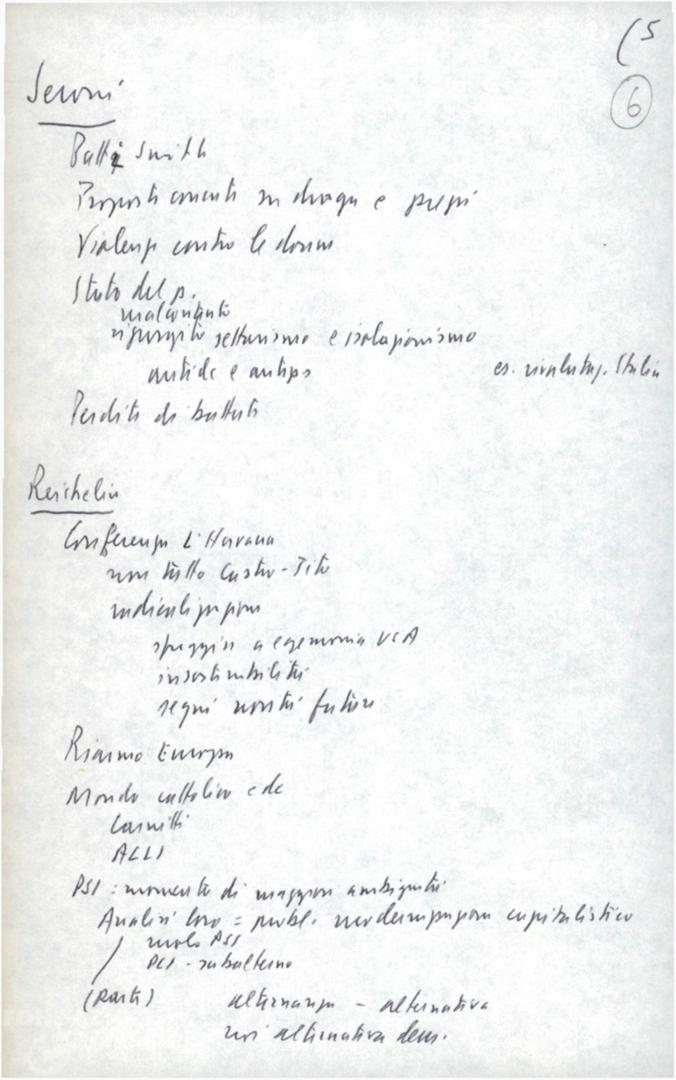 (5
6
Seroni
Patti Smith
Proposte concrete su droga e
Violenza contro le donne
Stato del p.
malcontento
rigurgito settarismo e isolazionismo
antidc e antips
es. rivalutaz. Stalin
Perdita di battuti
Reichlin
Conferenza L'Havana
non tutto Castro-Tito
radicalizzazione
a egemonia USA
insostenibilità
segni novità future
Riarmo Europa
Mondo cattolico e dc
Carniti
ACLI
PSI: momento di maggiore ambiguità
Analisi loro = probl. modernizzazione capitalistica
ruolo PSI
PCI - subalterno
alternanza - alternativa
noi alternativa dem.